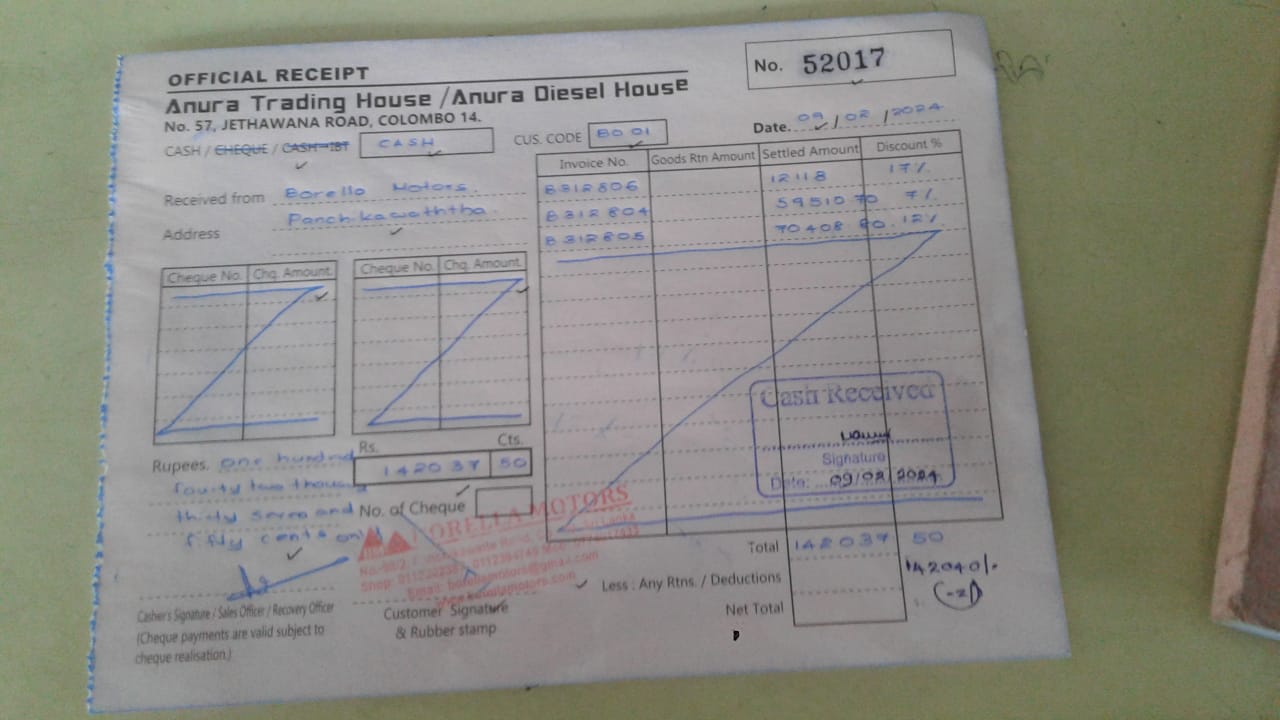 OFFICIAL RECEIPT
No. 52017
Anura Trading House / Anura Diesel House
No. 57, JETHAWANA ROAD, COLOMBO 14.
Date. 09 / 02 / 2024
CASH / CHEQUE / CASH-IBT CASH
CUS. CODE BO 01
Received from Borello Motors.
Panchikawaththa.
Address
Invoice No. Goods Rtn Amount Settled Amount Discount %
B312806 12118 17%
B312804 59510 70 7%
B312805 70408 80 12%
Cheque No. Chq. Amount Cheque No. Chq. Amount
Cash Received
Signature
Date: 09/02/2024
Rs. Cts.
142037 50
Rupees. One hundred
fourty two thousand
thirty seven and
fifty cents only
No. of Cheque
BORELLA MOTORS
Email: borellamotors@gmail.com
Total 142037 50
Less : Any Rtns. / Deductions
142040/-
(-2)
Net Total
Cashier's Signature / Sales Officer / Recovery Officer
(Cheque payments are valid subject to
cheque realisation.)
Customer Signature
& Rubber stamp